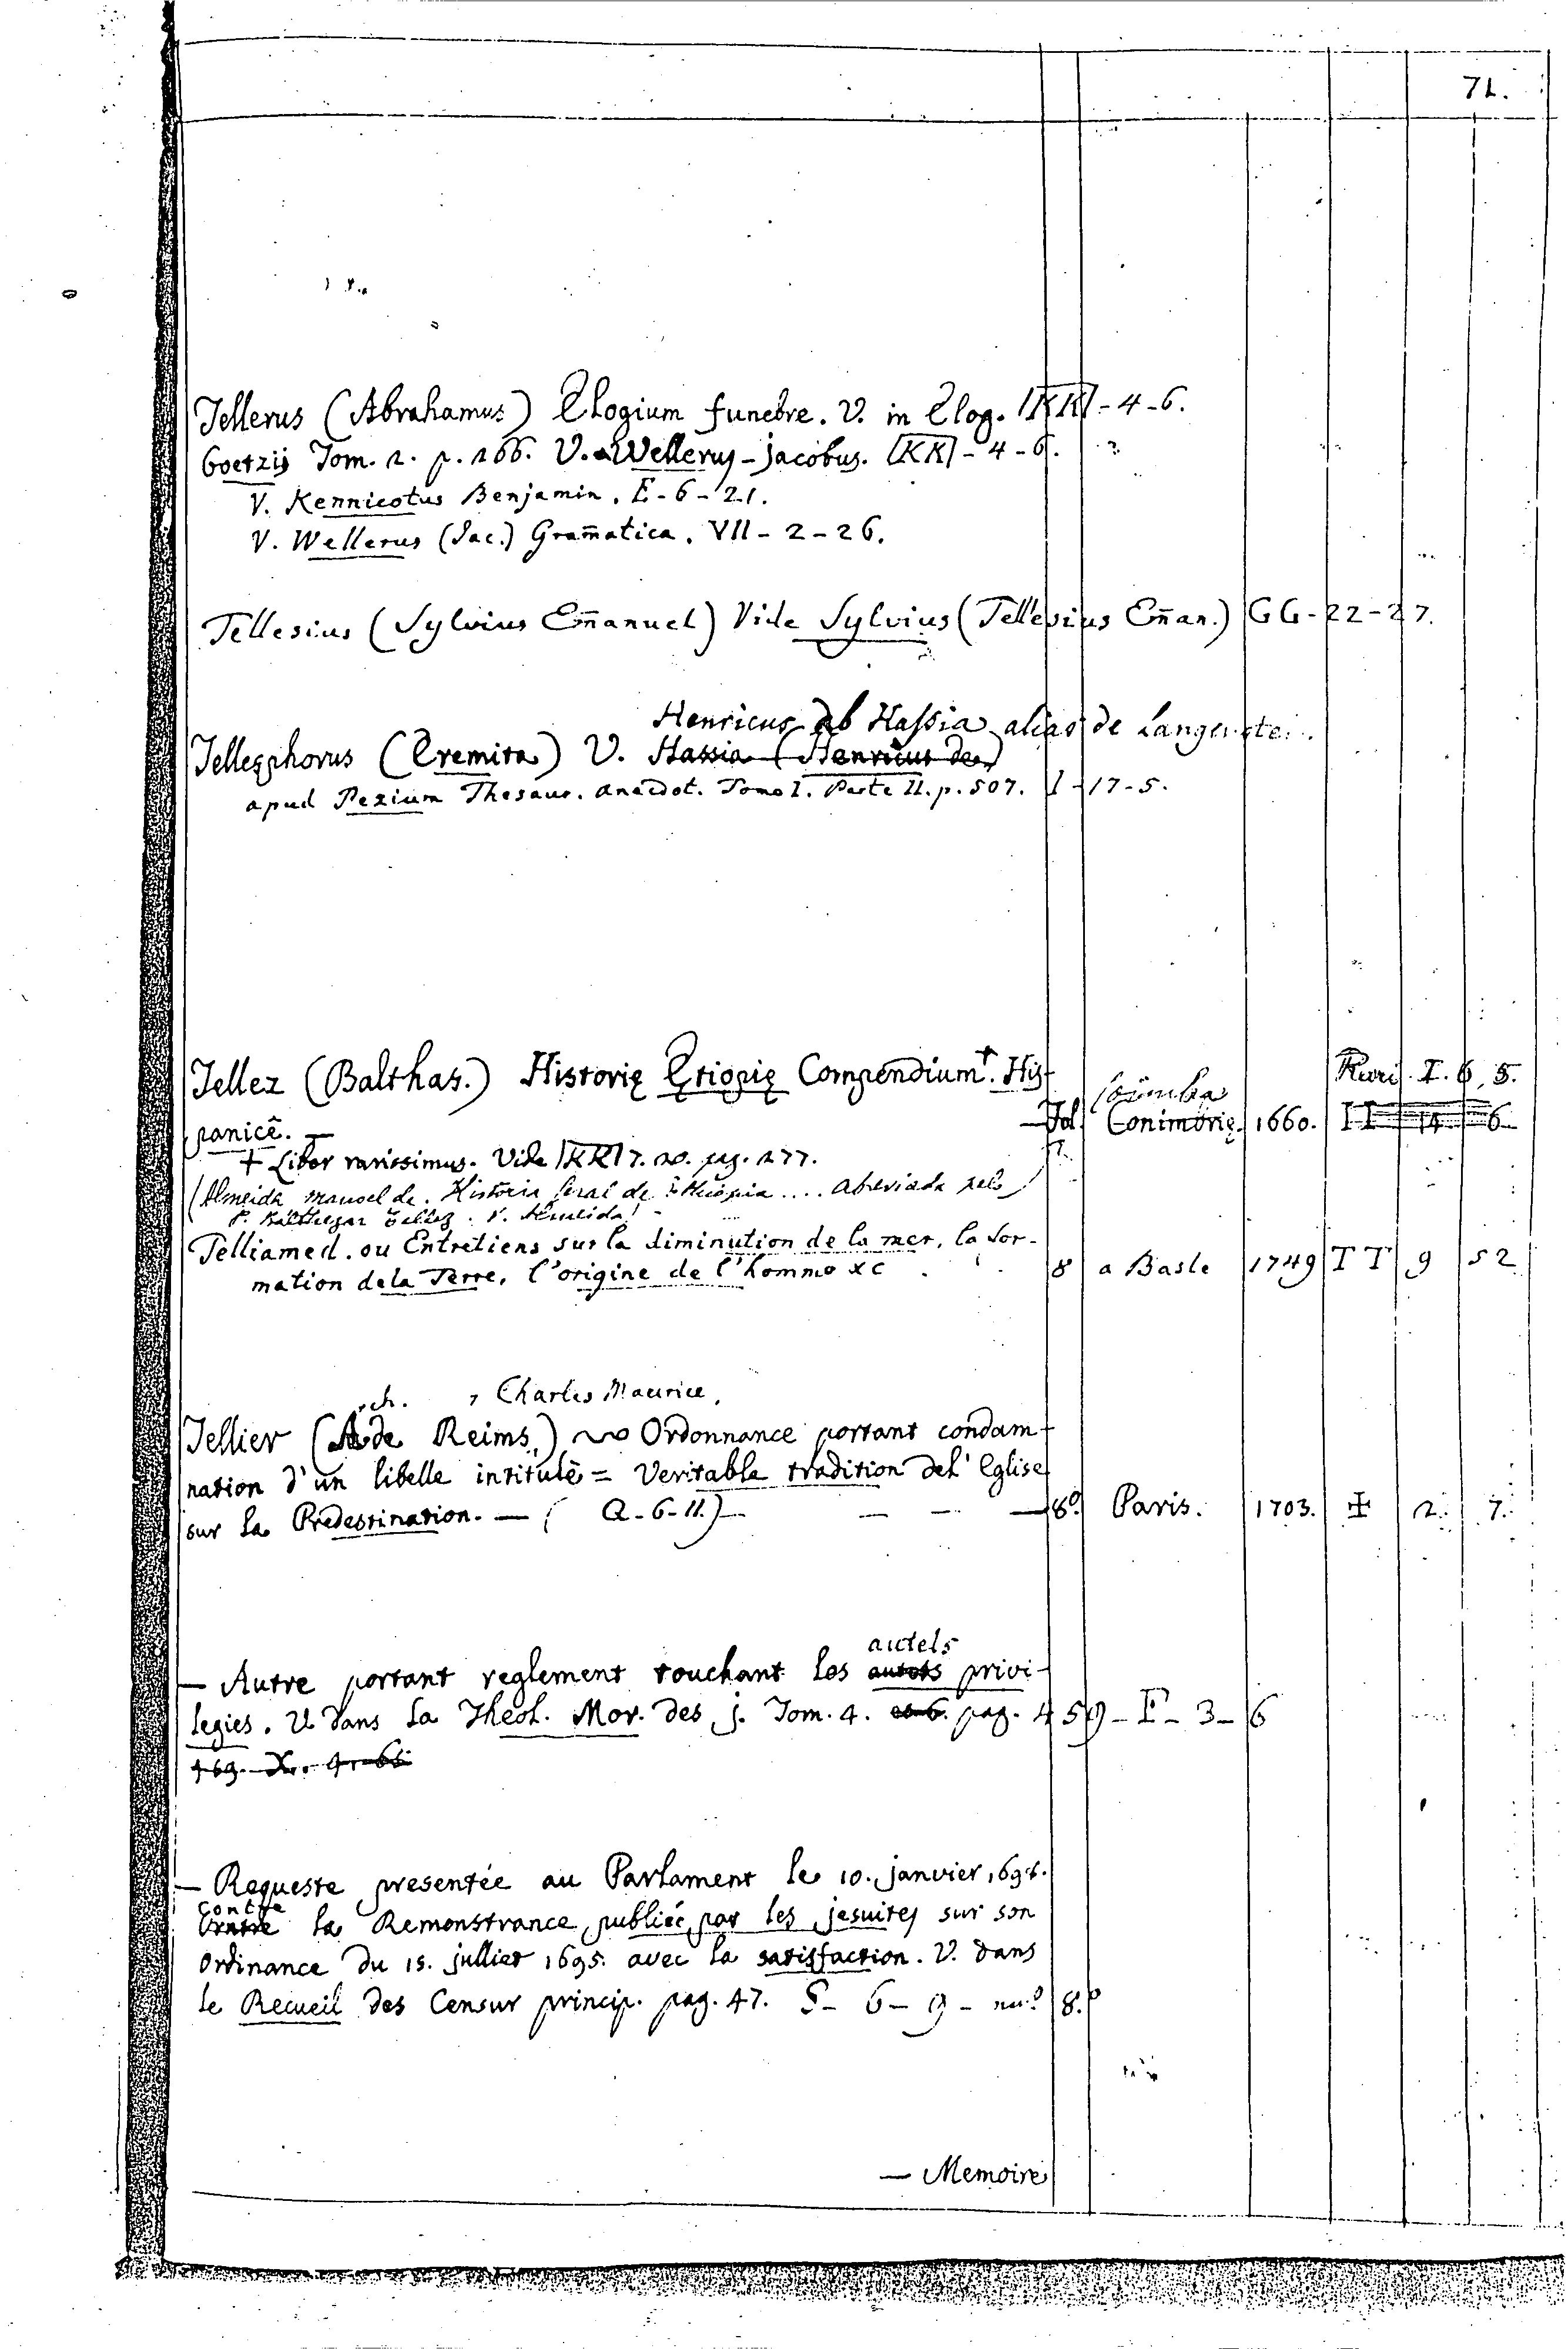 71.
Tellerus (Abrahamus) Elogium funebre. V. in Elog. |KK|-4-6.
Goetzij Tom. 2. p. 166. V. Wellerus-Jacobus. |KK|-4-6.
V. Kennicotus Benjamin. E-6-21.
V. Wellerus (Jac.) Gram̄atica. VII-2-26.
Tellesius (Sylvius Em̄anuel) Vide Sylvius (Tellesius Em̄an.) GG-22-27.
Henricus ab Hassia alias de Langenstei
Tellesphorus (Eremita) V. Hassia (Henricus de)
apud Pezium Thesaur. anecdot. Tomo I. Parte II. p. 507. I-17-5.
Tellez (Balthas.) Historię Ętiopię Compendium+. His- Rari. I. 6, 5.
panicê. — Fol. Coimbra Conimbrię. 1660. II 14 6
+ Liber rarissimus. Vide |KK| 7. 20. pag. 277.
(Almeida manoel de. Historia geral de Ethiopia .... abreviada pelo
P. Balthezar Tellez. V. Almeida)
Telliamed. ou Entretiens sur la diminution de la mer, la for-
mation de la Terre, l'origine de l'homme &c 8 a Basle 1749 TT 9 52
, Charles Maurice,
Tellier (Arch. de Reims,) Ordonnance portant condam-
nation d'un libelle intitulê = Veritable tradition del' Eglise
sur la Predestination. — (Q-6-11.) — — — 8º Paris. 1703. ‡ 2. 7.
autels
— Autre portant reglement touchant les autels privi-
legies. V. dans la Theol. Mor. des j. Tom. 4. et 6. pag. 459-E-3-6
— Requeste presentée au Parlament le 10. janvier 1698.
contre
la Remonstrance publiée par les jesuites sur son
Ordinance du 15. jullier 1695. avec la satisfaction. V. dans
le Recueil des Censur princip. pag. 47. S-6-9- nu.º 8.º
— Memoire